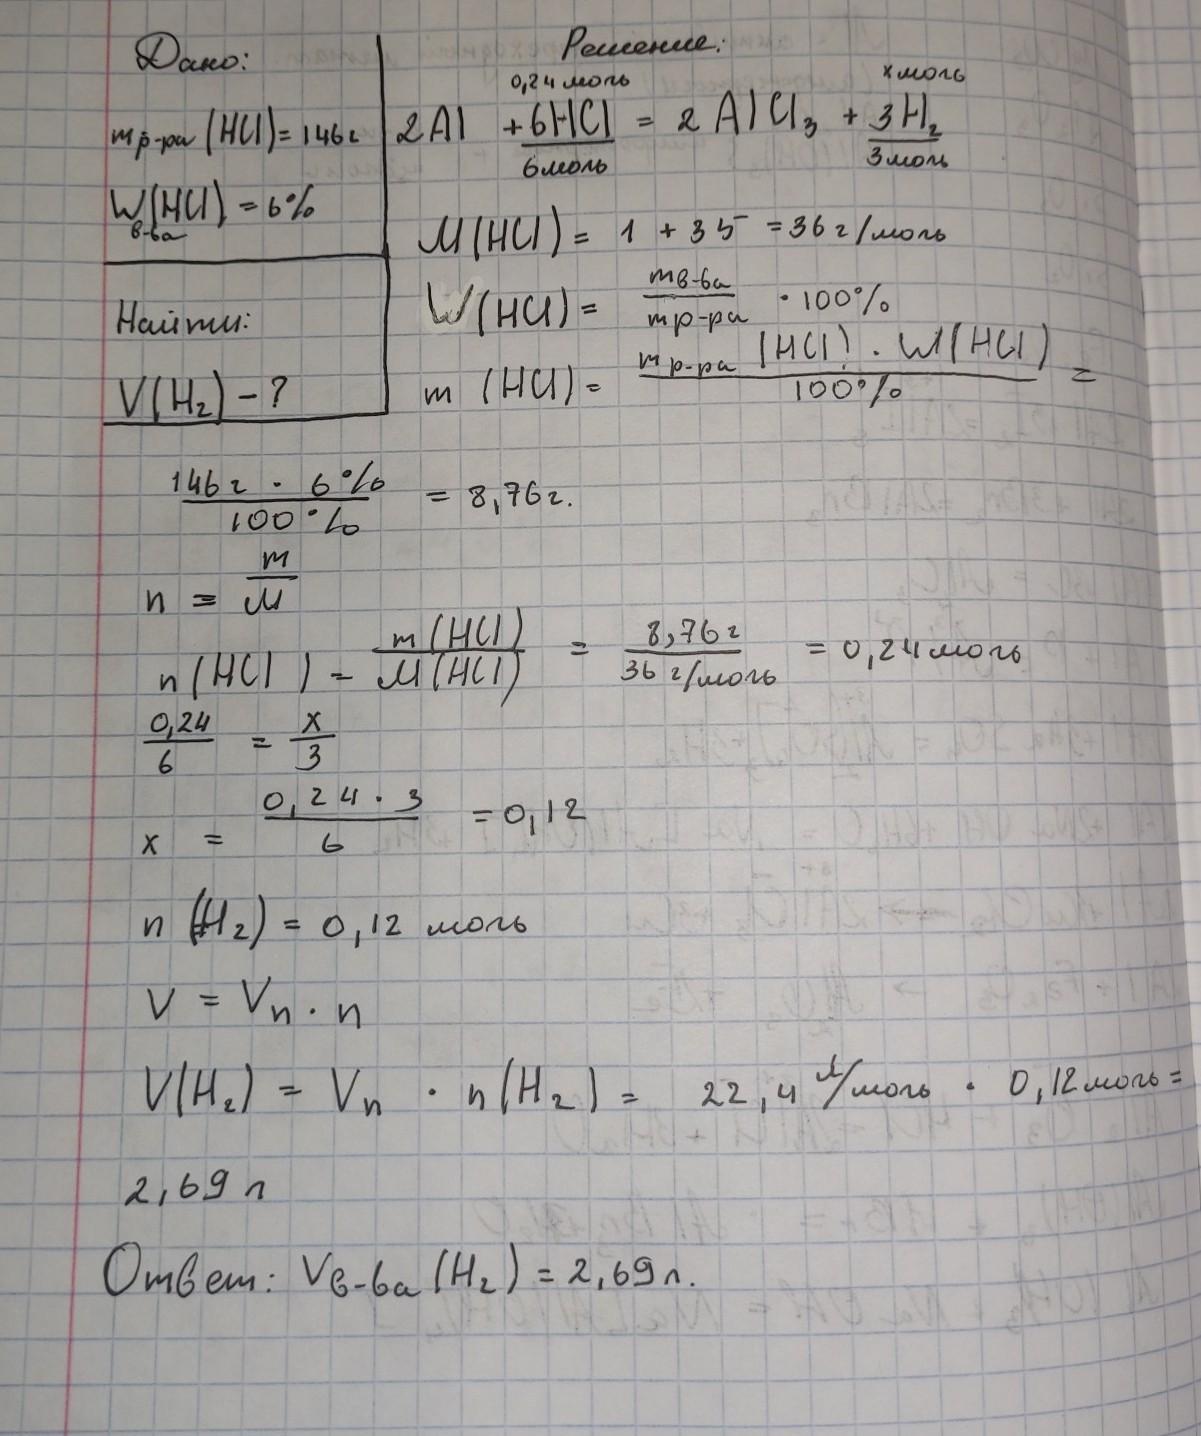 Дано:
m р-ра (HCl) = 146 г
W в-ва (HCl) = 6%
Найти:
V(H₂) - ?
Решение:
0,24 моль x моль
2Al + 6HCl = 2AlCl₃ + 3H₂
6 моль 3 моль
M(HCl) = 1 + 35 = 36 г/моль
W(HCl) = m в-ва / m р-ра · 100%
m (HCl) = m р-ра (HCl) · W(HCl) / 100% =
146 г · 6% / 100% = 8,76 г.
n = m / M
n(HCl) = m(HCl) / M(HCl) = 8,76 г / 36 г/моль = 0,24 моль
0,24 / 6 = x / 3
x = 0,24 · 3 / 6 = 0,12
n (H₂) = 0,12 моль
V = Vn · n
V(H₂) = Vn · n(H₂) = 22,4 л/моль · 0,12 моль =
2,69 л
Ответ: V в-ва (H₂) = 2,69 л.